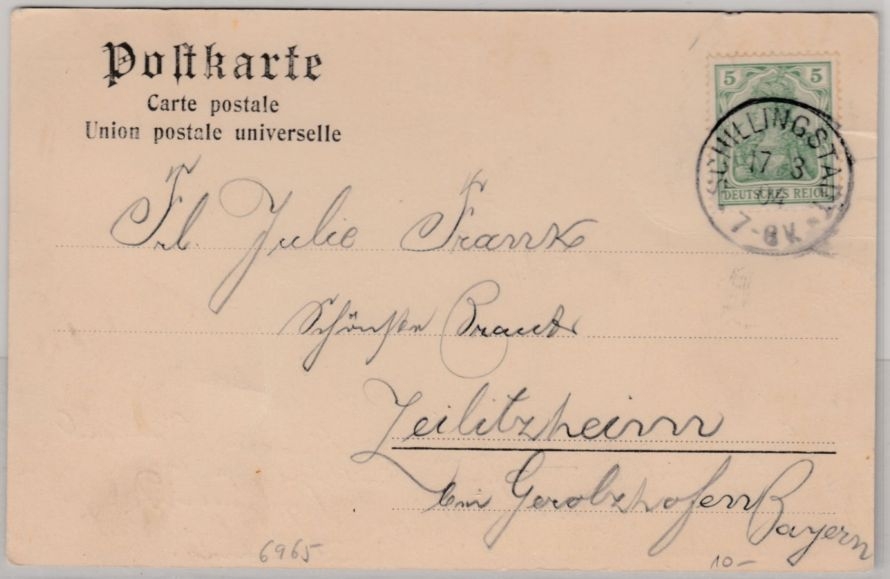 Postkarte
Carte postale
Union postale universelle
5 5
DEUTSCHES REICH
SCHILLINGSTADT
17 3
04
7-8V.
Frl. Julie Frank
Schönste Braut
Zeilitzheim
bei Gerolzhofen Bayern
6965
10-